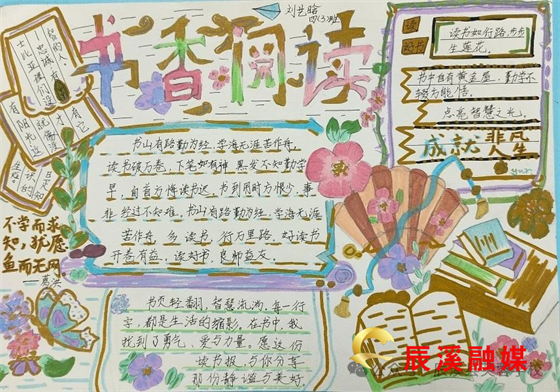 书香阅读
书山有路勤为径,学海无涯苦作舟,
读书破万卷,下笔如有神,黑发不知勤学
早,白首方悔读书迟,书到用时方恨少,事
非经过不知难,书山有路勤为径,学海无涯
苦作舟,多读书,行万里路,好读书
开卷有益,读好书,良师益友。
读书如行路,步步
生莲花。
书中自有黄金屋,勤学不
点亮智慧之光。
成就非凡
人生
不学而求
知,犹愿
鱼而无网
葛洪
书页轻翻,智慧流淌,每一行
字,都是生活的缩影,在书中,我
找到了勇气、爱与力量,愿这份
读书报,与你分享
那份静谧与美好
辰溪融媒